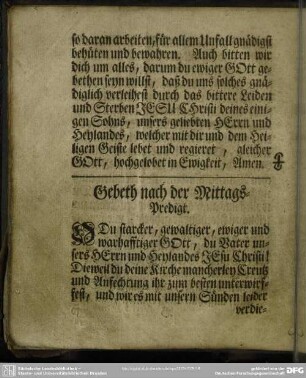 so daran arbeiten, für allem Unfall gnädigst
behüten und bewahren. Auch bitten wir
dich um alles, darum du ewiger GOtt ge-
bethen seyn willst, daß du uns solches gnä-
diglich verleihest durch das bittere Leiden
und Sterben JESU CHristi deines eini-
gen Sohns, unsers geliebten HErrn und
Heylandes, welcher mit dir und dem Hei-
ligen Geiste lebet und regieret, gleicher
GOtt, hochgelobet in Ewigkeit, Amen.
Gebeth nach der Mittags-
Predigt.
O Du starcker, gewaltiger, ewiger und
warhafftiger GOtt, du Vater un-
sers HErrn und Heylandes JEsu Christi!
Dieweil du deine Kirche mancherley Creutz
und Anfechtung ihr zum besten unterwirf-
fest, und wir es mit unsern Sünden leider
verdie-